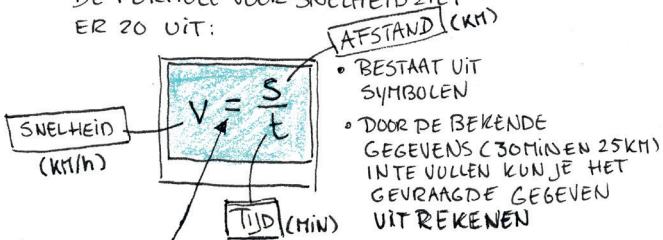 DE FORMULE VOOR SNELHEID ZIET
ER ZO UIT:
AFSTAND (KM)
V = S
t
SNELHEID
(KM/h)
TIJD (MIN)
• BESTAAT UIT
SYMBOLEN
• DOOR DE BEKENDE
GEGEVENS (30MIN EN 25KM)
IN TE VULLEN KUN JE HET
GEVRAAGDE GEGEVEN
UITREKENEN